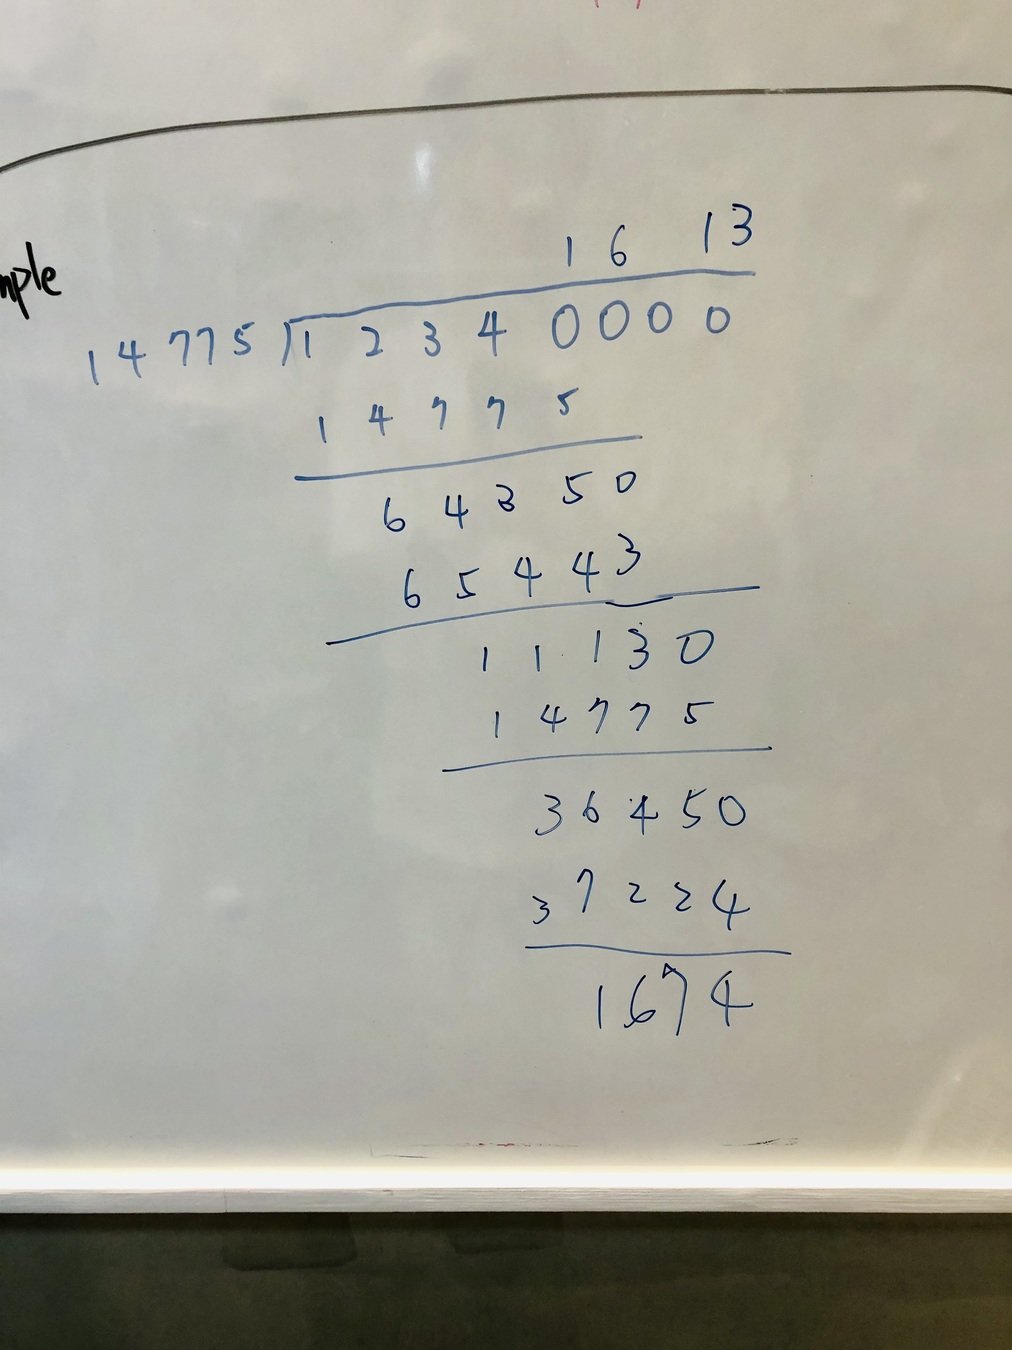 mple
16 13
14775)12340000
14775
64350
65443
11130
14775
36450
37224
1674